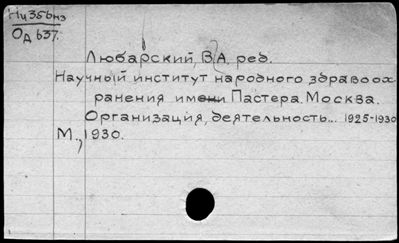 Ни35бнз
Од637.
Любарский, В.А. ред.
Научный институт народного здравоох-
ранения имени Пастера. Москва.
Организация, деятельность... 1925-1930
М., 1930.